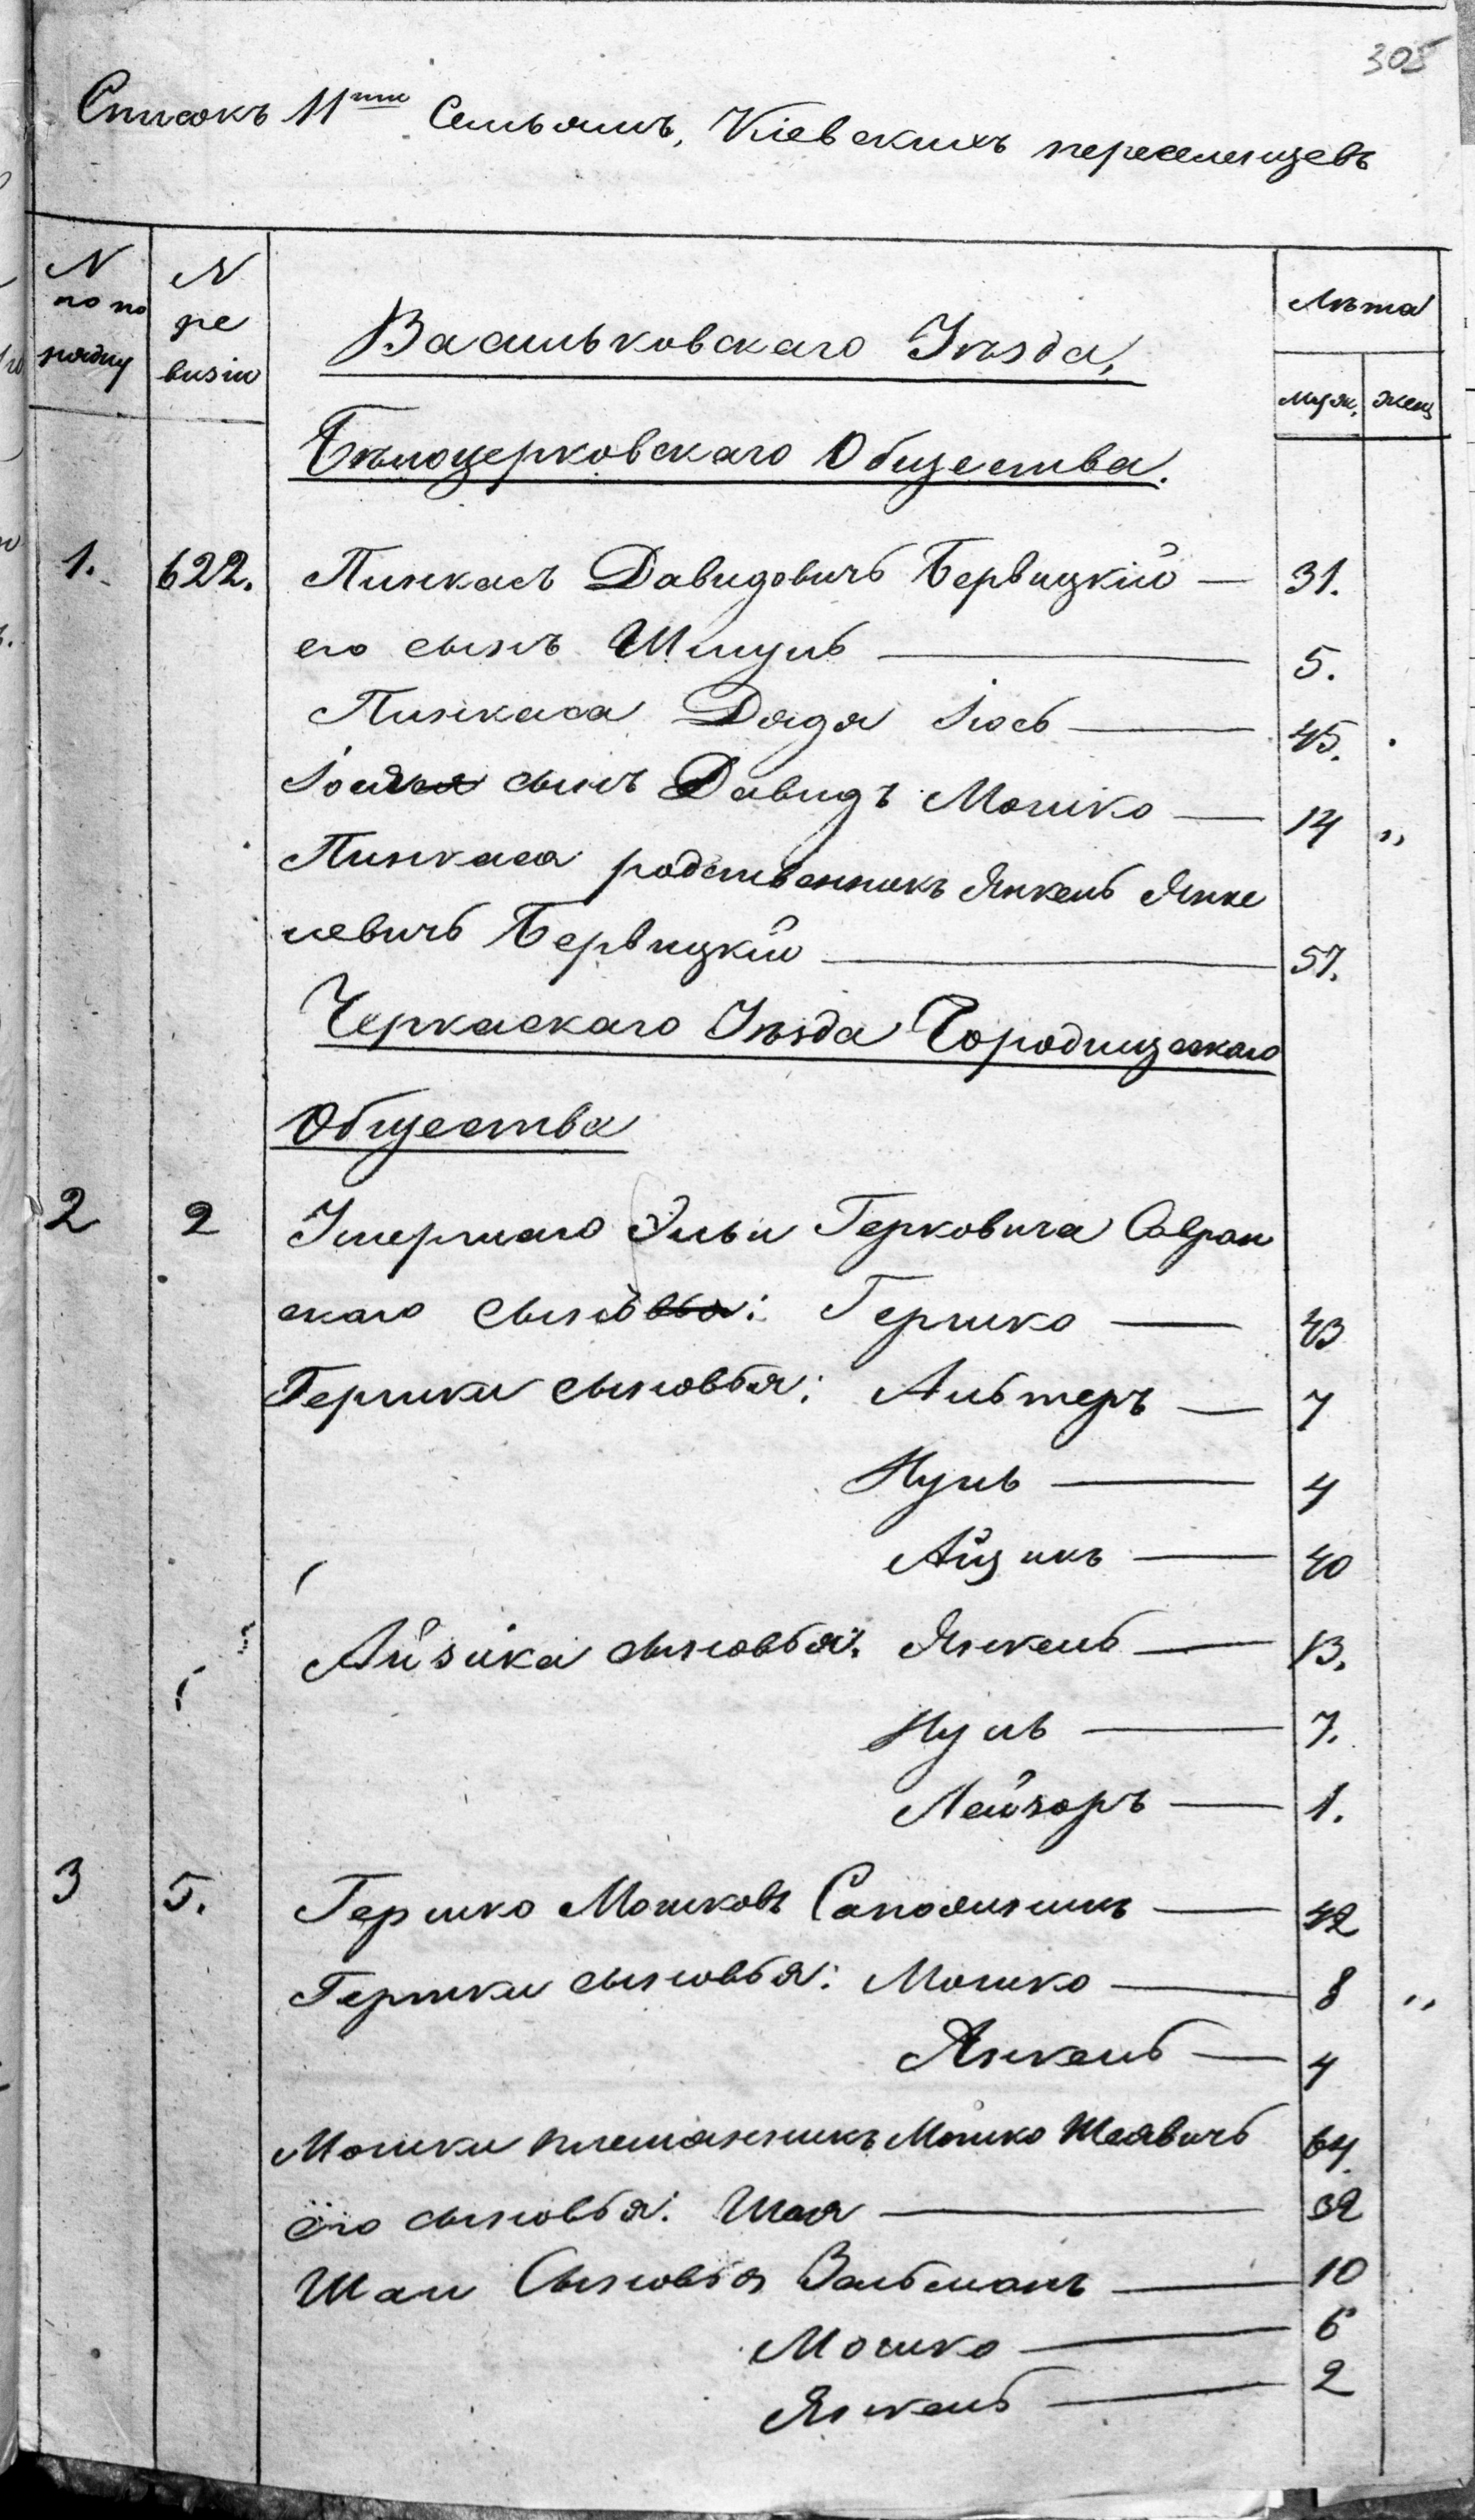 305
Списокъ 11ти Семьямъ, Кіевскихъ переселенцевъ
N по по рядку
N ре визіи
Лѣта
муж. жен
Васильковскаго Уѣзда,
Бѣлоцерковскаго Общества.
1. 622. Пинкасъ Давидовичъ Бервицкій — 31.
его сынъ Шмуль — 5.
Пинкаса Дядя Іось — 45.
сынъ Давидъ Мошко — 14 "
Пинкаса родственникъ Янкель Янке
левичъ Бервицкій — 57.
Черкаскаго Уѣзда Городищескаго
Общества
2 2 Умершаго Эльи Герковича Савран
скаго сынъ: Гершко — 43
Гершки сыновья: Альтеръ — 7
Нуль — 4
Айзикъ — 40
Айзика сыновья: Янкель — 13.
Нуль — 7.
Лейзоръ — 1.
3 5. Гершко Мошковъ — 42
Гершки сыновья: Мошко — 8 "
Янкель — 4
Мошки племянникъ Мошко Шаявичъ 64.
Его сыновья: Шая — 32
Шаи Сыновья Зальманъ — 10
Мошко — 6
Янкель — 2